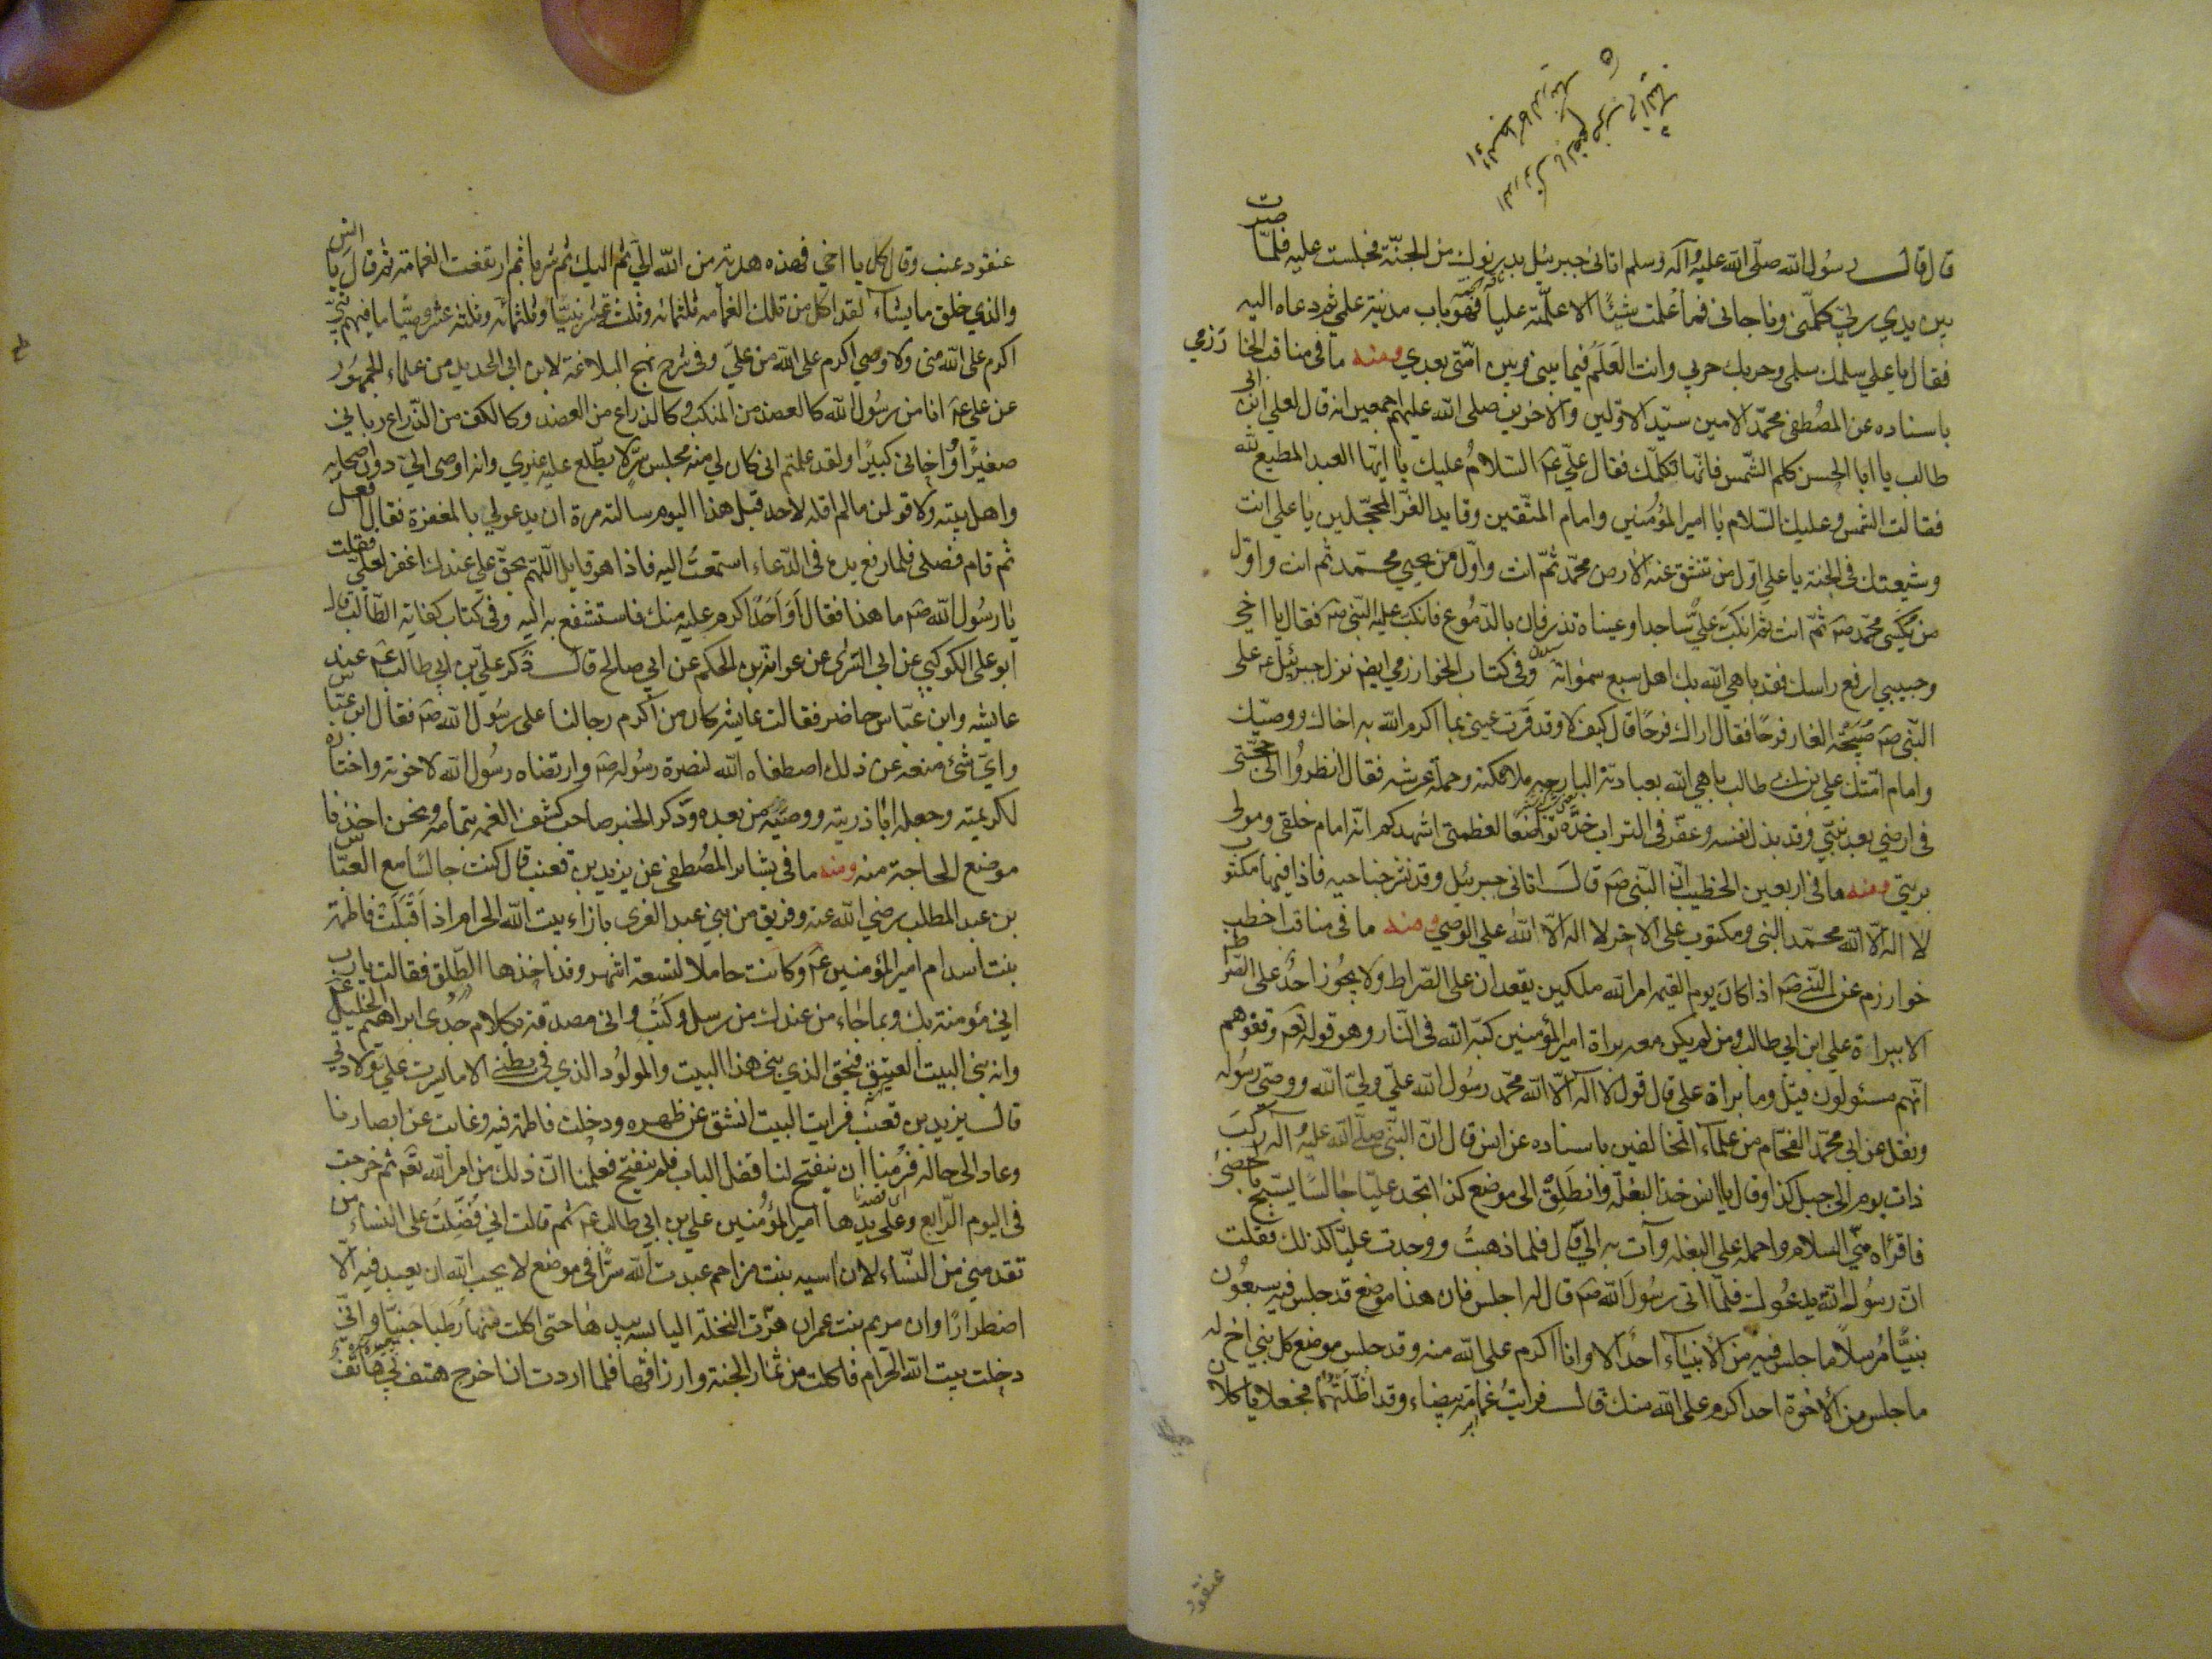 قال قال رسول الله صلى الله عليه وآله وسلم اتانى جبرئيل بدرنوك من الجنة فجلست عليه فلما صرت
بين يدي ربي كلمنى وناجانى فما علمت شيئا الا علمته عليا فهو باب مدينة علمي ثم دعاه اليه
فقال يا علي سلمك سلمى وحربك حربي وانت العلم فيما بينى وبين امتى بعدي ومنه ما فى مناقب الخوارزمي
باسناده عن المصطفى محمد الامين سيد الاولين والآخرين صلى الله عليهم اجمعين انه قال لعلي ابن ابى
طالب يا ابا الحسن كلم الشمس فانها تكلمك فقال علي عم السلام عليك يا ايها العبد المطيع لله
فقالت الشمس وعليك السلام يا امير المؤمنين وامام المتقين وقايد الغر المحجلين يا علي انت
وشيعتك فى الجنة يا علي اول من تنشق عنه الارض محمد ثم انت واول من يحيي محمد ثم انت واول
من يكسى محمد صم ثم انت ثم انكب علي ساجدا وعيناه تذرفان بالدموع فانكب عليه النبى صم فقال يا اخي
وحبيبي ارفع راسك فقد باهى الله بك اهل سبع سمواته وفى كتاب الخوارزمي ايضا نزل جبرئيل عم على
النبى صم صبيحة الغار فرحا فقال اراك فرحا قال كيف لا وقد قرت عينى بما اكرم الله به اخاك ووصيك
وامام امتك علي بن ابى طالب باهى الله بعبادته البارحة ملائكته وحملة عرشه فقال انظروا الى حجتى
فى ارضي بعد نبيي وقد بذل نفسه وعفر فى التراب خده تواضعا لعظمتى اشهدكم انه امام خلقى ومولى
بريتي ومنه ما فى اربعين الخطيب ان النبى صم قال اتانى جبرئيل وقد نشر جناحيه فاذا فيها مكتوب
لا اله الا الله محمد النبى ومكتوب على الآخر لا اله الا الله علي الوصي ومنه ما فى مناقب اخطب
خوارزم عن النبى صم اذا كان يوم القيمة امر الله ملكين يقعدان على الصراط ولا يجوز احد على الصراط
الا ببراءة علي ابن ابي طالب ومن لم يكن معه براة امير المؤمنين كبه الله فى النار وهو قوله تعم وقفوهم
انهم مسئولون قيل وما براة علي قال قول لا اله الا الله محمد رسول الله علي ولي الله ووصي رسوله
ونقل عن ابي محمد الفحام من علماء المخالفين باسناده عن انس قال ان النبى صلى الله عليه وآله ركب
ذات يوم الى جبل كذا وقال يا انس خذ البغلة وانطلق الى موضع كذا تجد عليا جالسا يسبح بالحصى
فاقرأه مني السلام واحمله على البغلة وآت به الي قال فلما ذهبت ووجدت عليا كذلك فقلت
ان رسول الله يدعوك فلما اتى رسول الله صم قال له اجلس فان هذا موضع قد جلس فيه سبعون
نبيا مرسلا ما جلس فيه من الأنبياء احد الا وانا اكرم على الله منه وقد جلس موضع كل نبي اخ له
ما جلس من الأخوة احد اكرم على الله منك قال فرايت غمامة بيضاء وقد اظلتهما فجعلا ياكلان
عنقود
عنقود عنب وقال كل يا اخي فهذه هدية من الله الي ثم اليك ثم شربا ثم ارتفعت الغمامة ثم قال يا انس
والذي خلق ما يشاء لقد اكل من تلك الغمامه ثلثمائه وثلث عشر نبيا وثلثمائه وثلثه عشر وصيا ما فيهم نبي
اكرم على الله منى ولا وصي اكرم على الله من علي وفى شرح نهج البلاغة لابن ابى الحديد من علماء الجمهور
عن علي عم انا من رسول الله كالعضد من المنكب وكالذراع من العضد وكالكف من الذراع رباني
صغيرا واخانى كبيرا ولقد علمتم انى كان لي منه مجلس سر لا يطلع عليه غيري وانه اوصى الي دون اصحابه
واهل بيته ولاقولن ما لم اقله لاحد قبل هذا اليوم سالته مرة ان يدعو لي بالمغفرة فقال افعل
ثم قام فصلى فلما رفع يده فى الدعاء استمعت اليه فاذا هو قايل اللهم بحق علي عندك اغفر لعلي فقلت
يا رسول الله صم ما هذا فقال أو احد اكرم عليه منك فاستشفع به اليه وفى كتاب كفاية الطالب قال
ابو على الكوكبي عن ابى السرى عن عوانة بن الحكم عن ابي صالح قال ذكر علي بن ابي طالب عم عند
عايشه وابن عباس حاضر فقالت عايشه كان من اكرم رجالنا على رسول الله صم فقال ابن عباس
واي شئ منعه عن ذلك اصطفاه الله لنصرة رسوله صم وارتضاه رسول الله لاخوته واختاره
لكريمته وجعله ابا ذريته ووصيه من بعده وذكر الخبر صاحب كشف الغمه بتمامه ونحن اخذنا
موضع الحاجة منه ومنه ما فى بشاير المصطفى عن يزيد بن قعنب قال كنت جالسا مع العباس
بن عبد المطلب رضي الله عنه وفريق من بني عبد العزى بازاء بيت الله الحرام اذ اقبلت فاطمة
بنت اسد ام امير المؤمنين عم وكانت حاملا لتسعة اشهر وقد اخذها الطلق فقالت يا رب
اني مؤمنة بك وبما جاء من عندك من رسل وكتب وانى مصدقة بكلام جدى ابراهيم الخليل عم
وانه بنى البيت العتيق فبحق الذي بنى هذا البيت والمولود الذي فى بطني الا ما يسرت علي ولادتي
قال يزيد بن قعنب فرايت البيت انشق عن ظهره ودخلت فاطمة فيه وغابت عن ابصارنا
وعاد الى حاله فرمنا ان ينفتح لنا قفل الباب فلم ينفتح فعلمنا ان ذلك من امر الله تعم ثم خرجت
فى اليوم الرابع وعلى يدها امير المؤمنين علي بن ابي طالب عم ثم قالت اني فضلت على النساء من
تقدمني من النساء لان آسيه بنت مزاحم عبدت الله سرا فى موضع لا يحب الله ان يعبد فيه الا
اضطرارا وان مريم بنت عمران هزت النخلة اليابسه بيدها حتى اكلت منها رطبا جنيا وانى
دخلت بيت الله الحرام فاكلت من ثمار الجنة وارزاقها فلما اردت ان اخرج هتف بي هاتف